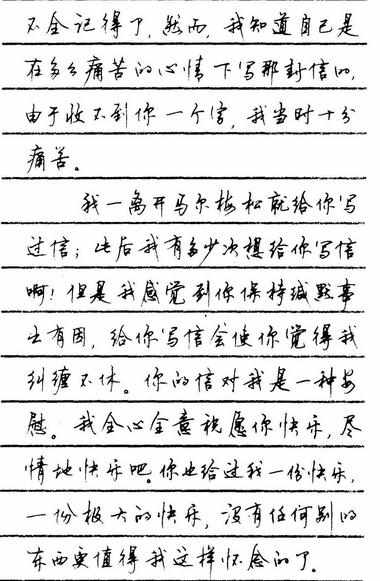 不全记得了，然而，我知道自己是
在多么痛苦的心情下写那封信的，
由于收不到你一个字，我当时十分
痛苦。
我一离开马尔梅松就给你写
过信；此后我有多少次想给你写信
啊！但是我感觉到你保持缄默事
出有因，给你写信会使你觉得我
纠缠不休。你的信对我是一种安
慰。我全心全意祝愿你快乐，尽
情地快乐吧。你也给过我一份快乐，
一份极大的快乐，没有任何别的
东西更值得我这样怀念的了。